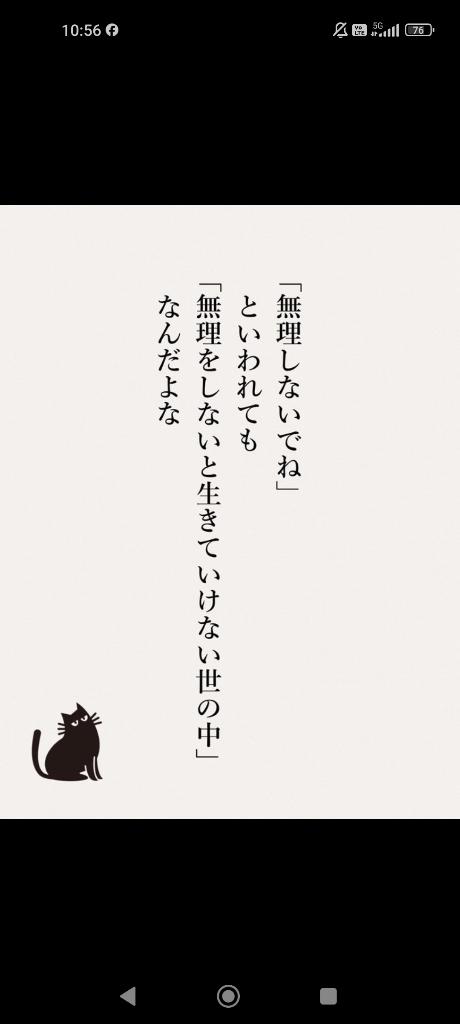 10:56
VoLTE
5G
76
「無理しないでね」
といわれても
「無理をしないと生きていけない世の中」
なんだよな